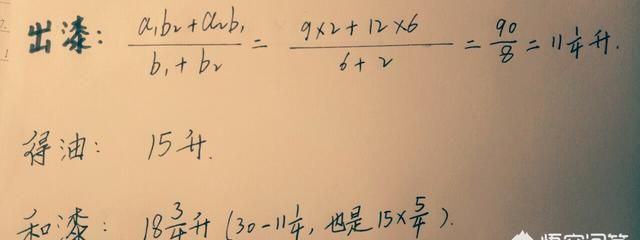 出漆： (a₁b₂+a₂b₁)/(b₁+b₂) = (9×2+12×6)/(6+2) = 90/8 = 11 1/4 升.
得油： 15升.
和漆： 18 3/4 升 (30-11 1/4, 也是 15×5/4).
悟空问答